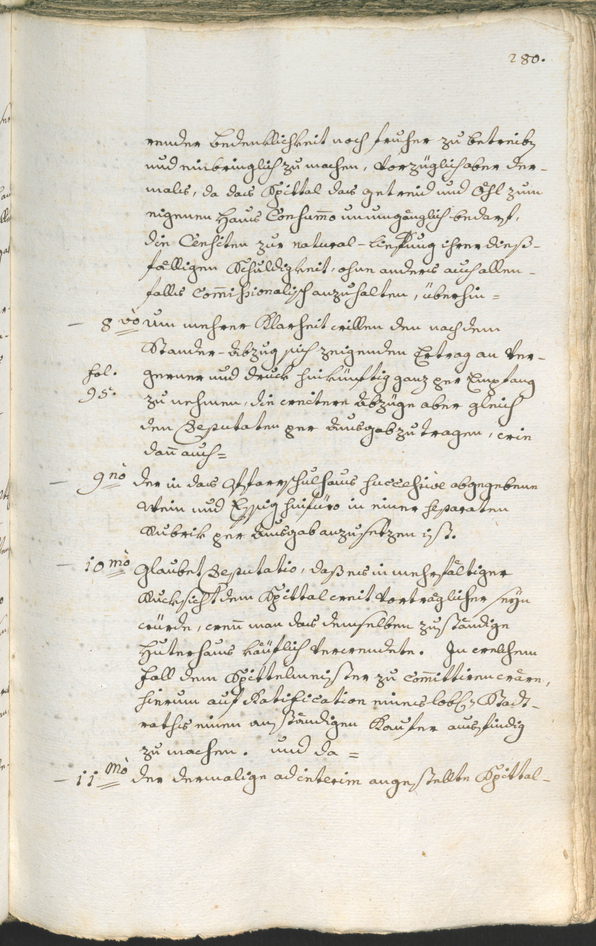 280.
render bedenklichkeit noch fruher zu betreiben
und einbringlich zu machen, vorzüglich aber der-
malis, da das Spittal das getreid und Öhl zum
eigenen Haus Consummo unumgänglich bedarf,
die Censiten zur natural-Liefferung ihrer dieß-
fälligen Schuldigkeit, ohne anders auch allen-
falls Commissionalisch anzuhalten, überhin =
– 8vo um mehrer Klarheit willen den nach dem
Stander-Abzug sich zeigenden Ertrag an Ver-
fol. gerner und druck hinkünftig ganz per Empfang
95. zu nehmen, die weitere Abzüge aber gleich
den Deputaten per Ausgab zu tragen, wie
dan auch =
– 9no der in das Pfarrschulhaus successive abgegebene
Wein und Essig hinfüro in einer separaten
Rubrik per Ausgab anzusetzen ist.
– 10mo glaubet Deputatio, daß es in mehrfältiger
Rucksicht dem Spittal weit vorträglicher seyn
würde, wenn man das demselben zuständige
Huterhaus käuflich verwendete. In welchem
fall dem Spittelmeister zu Committiren wäre,
hierum auf Ratification eines löbl. Stadt-
raths einen anständigen Kaufer ausfindig
zu machen. und da =
– 11mo der dermalige ad interim angestellte Spittal-